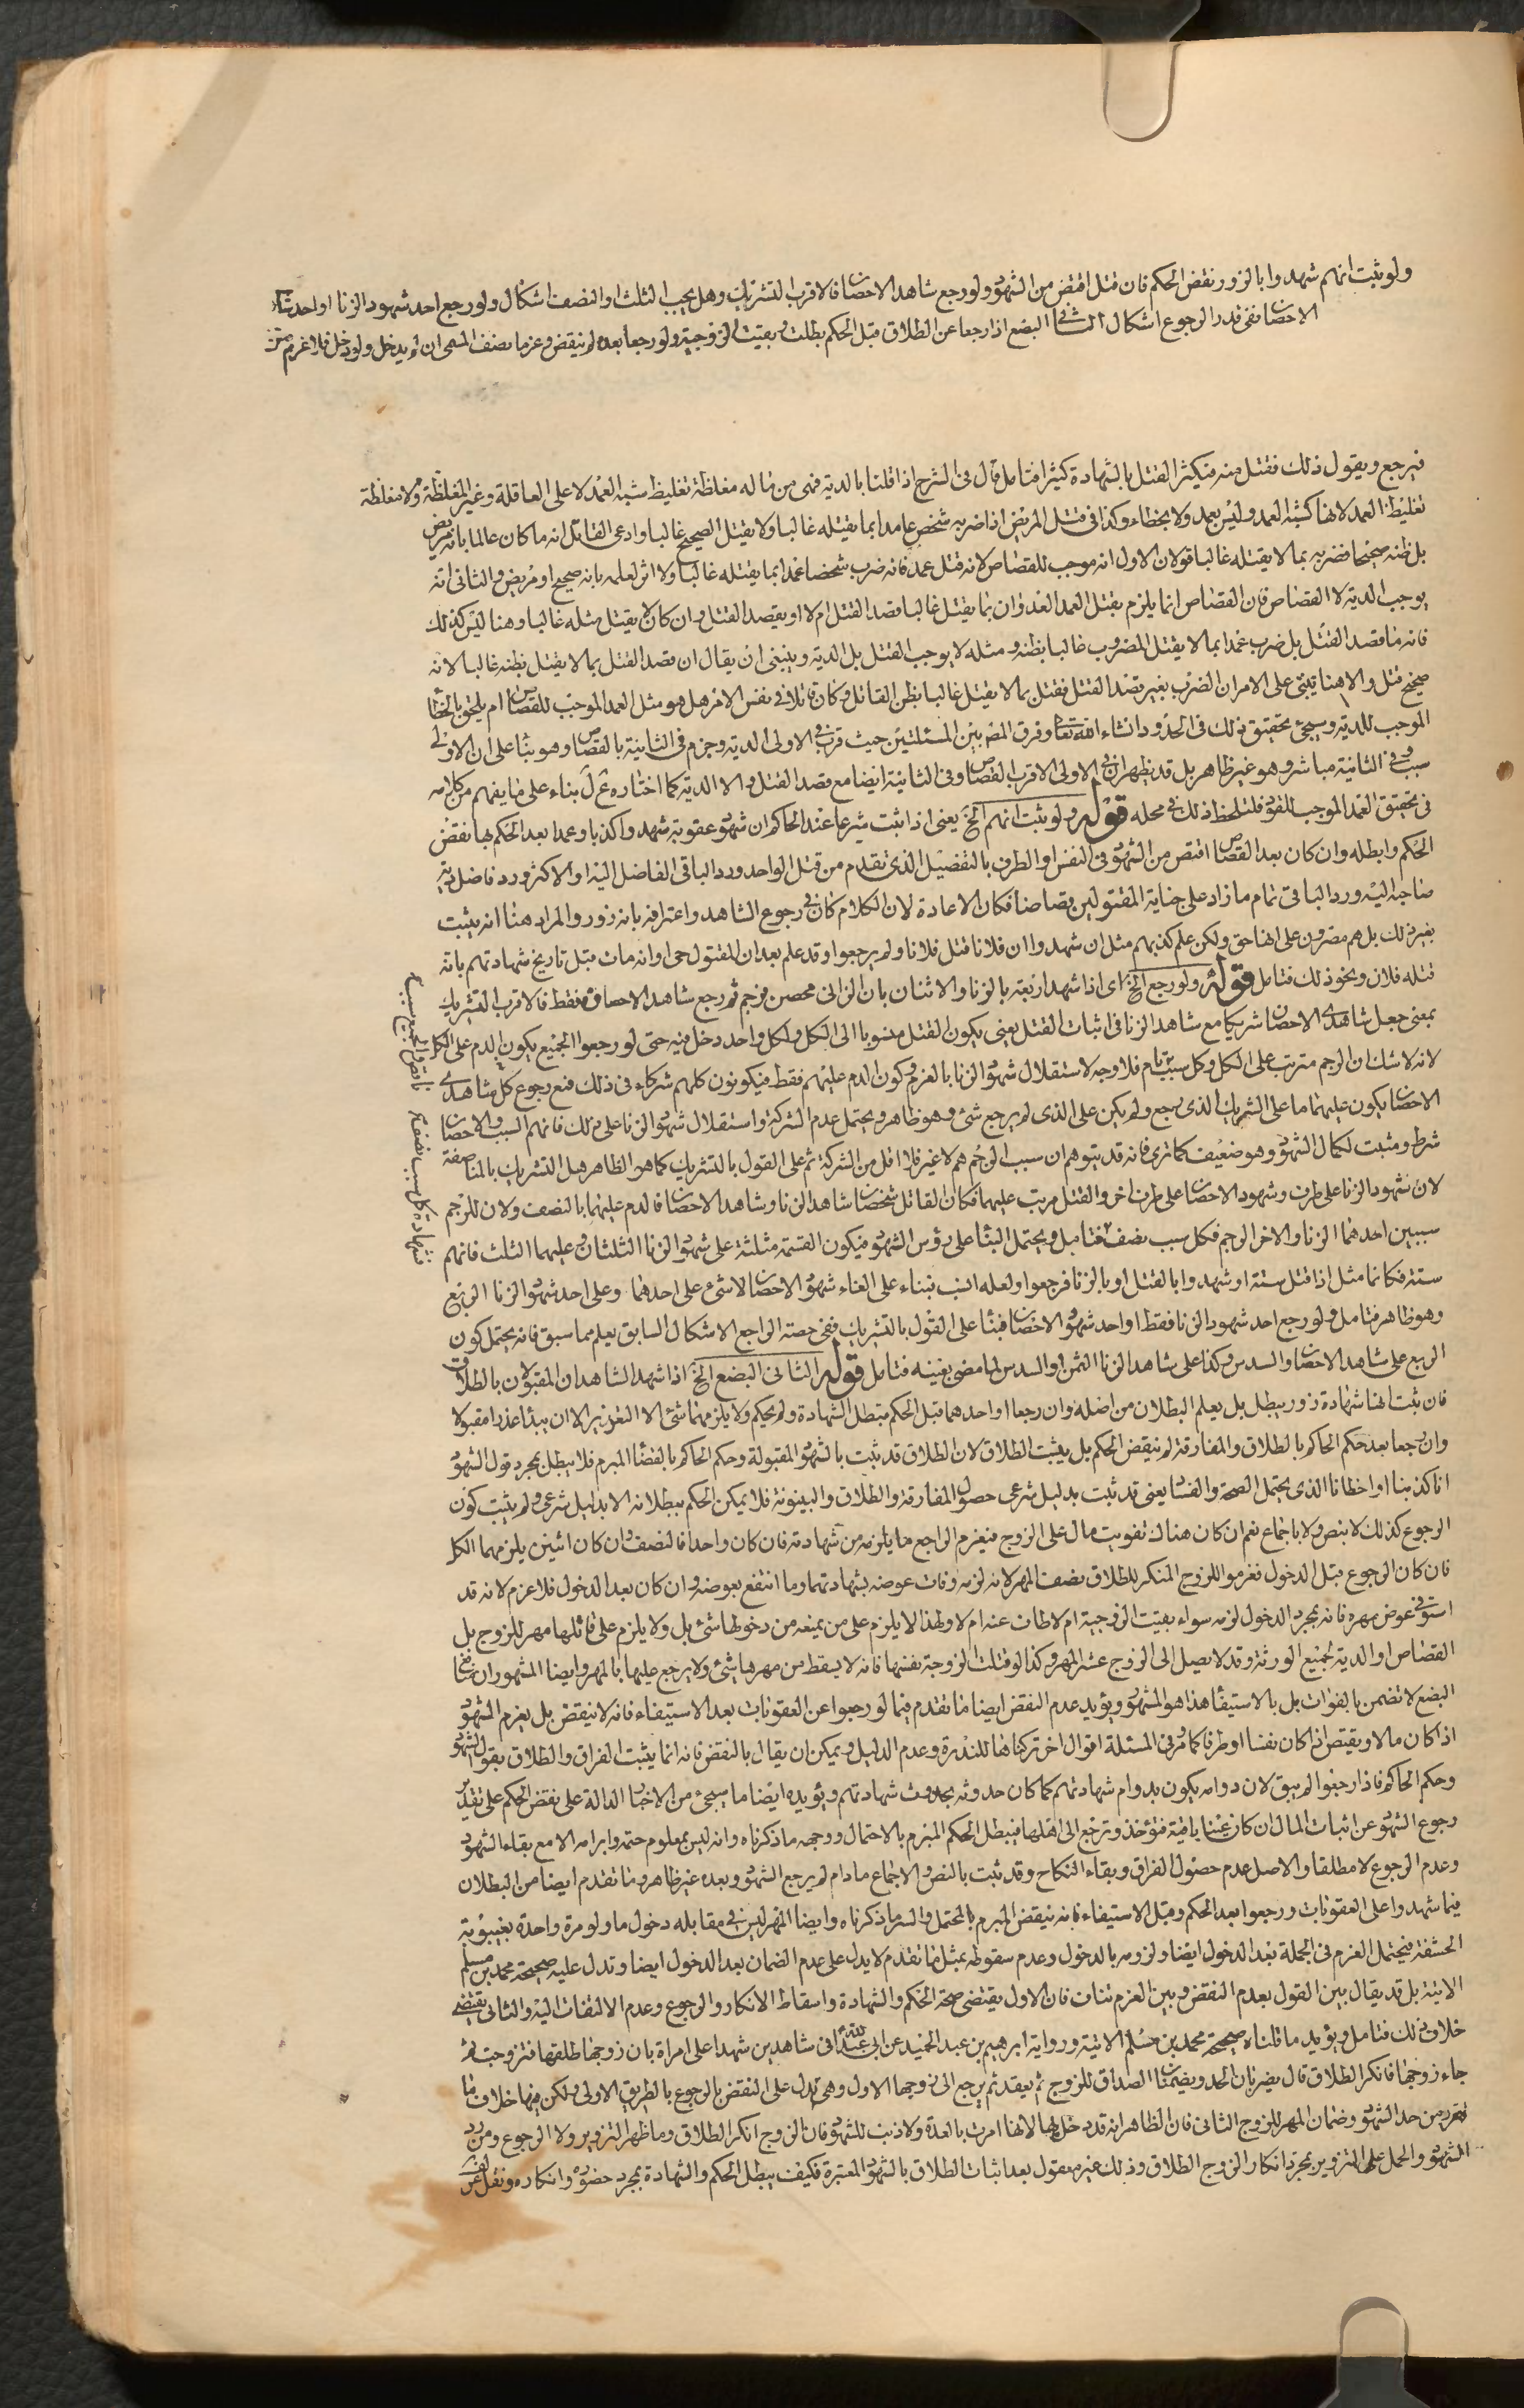 ولو ثبت انهم شهدوا بالزور نقض الحكم فان قتل اقتص من الشهود ولو رجع شاهدا الاحصان فالاقرب التشريك وهل يجب الثلث او النصف اشكال ولو رجع احد شهود الزنا او احد شاهدي
الاحصان ففي قدر الرجوع اشكال الثاني البضع اذا رجعا عن الطلاق قبل الحكم بطلت وبقيت الزوجية ولو رجعا بعده لم ينقض وغرما نصف المسمى ان لم يدخل ولو دخل فلا غرم
فيرجع ويقول ذلك فقتل منه فيكثر القتل بالشهادة كثيرا فتامل قال فى الشرح اذا قلنا بالدية فهى من ماله مغلظة تغليظ شبه العمد لا على العاقلة وغير المغلظة ولا مغلظة
تغليظ العمد لانها كشبه العمد وليس بعمد ولا بخطاء وكذا فى قتل المريض اذا ضربه شخص عامدا بما يقتله غالبا ولا يقتل الصحيح غالبا وادعى القاتل انه ما كان عالما بانه مريض
بل ظنه صحيحا فضربه بما لا يقتله غالبا قولان الاول انه موجب للقصاص لانه قتل عمد فانه ضرب شخصا عمدا بما يقتله غالبا ولا اثر لعلمه بانه صحيح او مريض والثانى انه
يوجب الدية لا القصاص فان القصاص انما يلزم بقتل العمد العدوان بما يقتل غالبا قصد القتل ام لا او يقصد القتل وان كان لا يقتل مثله غالبا وهنا ليس كذلك
فانه ما قصد القتل بل ضرب عمدا بما لا يقتل المضروب غالبا بظنه ومثله لا يوجب القتل بل الدية وينبغى ان يقال ان قصد القتل بما لا يقتل بظنه غالبا لانه
صحيح قتل والا هنا يبنى على الامر ان الضرب بغير قصد القتل فقتل بما لا يقتل غالبا بظن القاتل وكان قاتلا فى نفس الامر هل هو مثل العمد الموجب للقصاص ام يلحق بالخطأ
الموجب للدية وسيجئ تحقيق ذلك فى الحدود انشاء الله تعا وفرق المصـ بين المسئلتين حيث قرب فى الاولى الدية وجزم فى الثانية بالقصاص وهو بنا على ان الاولى
سبب وفى الثانية مباشر وهو غير ظاهر بل قد يظهر ان فى الاولى الاقرب القصاص وفى الثانية ايضا مع قصد القتل والا الدية كما اختاره عَ لَ بناء على ما يفهم من كلامه
فى تحقيق العمد الموجب للقود فلنلحظ ذلك فى محله قوله ولو ثبت انهم الخ يعنى اذا ثبت شرعا عند الحاكم ان شهود عقوبة شهدوا كذبا وعمدا بعد الحكم بها نقض
الحكم وابطله وان كان بعد القصاص اقتص من الشهود فى النفس او الطرف بالتفصيل الذى تقدم من قتل الواحد ورد الباقى الفاضل اليه او الاكثر ورد فاضل دية
صاحبه اليه ورد الباقى تمام ما زاد على جناية المقتولين قصاصا فكان الاعادة لان الكلام كان فى رجوع الشاهد واعترافه بانه زور والمراد هنا انه يثبت
بغير ذلك بل هم مصرون على انها حق ولكن علم كذبهم مثل ان شهدوا ان فلانا قتل فلانا ولم يرجعوا وقد علم بعد ان المقتول حى او انه مات قبل تاريخ شهادتهم بانه
قتله فلان ونحو ذلك فتامل قوله ولو رجع الخ اى اذا شهد اربعة بالزنا والاثنان بان الزانى محصن فرجم ثم رجع شاهدا الاحصان فقط فالاقرب التشريك
بمعنى جعل شاهدى الاحصان شريكا مع شاهد الزنا فى اثبات القتل يعنى يكون القتل منسوبا الى الكل ولكل واحد دخل فيه حتى لو رجعوا الجميع يكون الدم على الكل
لانه لا شك ان الرجم مترتب على الكل وكل سبب تام فلا وجه لاستقلال شهود الزنا بالغرم وكون الدم عليهم فقط فيكونون كلهم شركاء فى ذلك فمع رجوع كل شاهدى
الاحصان يكون عليهما ما على الشريك الذى رجع ولم يكن على الذى لم يرجع شئ وهو ظاهر ويحتمل عدم الشركة واستقلال شهود الزنا على ذلك فانهم السبب والاحصان
شرط ومثبت لكمال الشهود وهو ضعيف كما ترى فانه قد يتوهم ان سبب الرجم هم لا غير فلا اقل من الشركة ثم على القول بالتشريك كما هو الظاهر هل التشريك بالمناصفة
لان شهود الزنا على طرف وشهود الاحصان على طرف اخر والقتل مرتب عليهما فكان القاتل شخصان شاهد الزنا وشاهد الاحصان فالدم عليهما بالنصف ولان للرجم
سببين احدهما الزنا والاخر الرجم فكل سبب نصف فتامل ويحتمل البنا على رؤس الشهود فيكون القسمة مثلثة على شهود الزنا الثلثان وعليهما الثلث فانهم
ستة فكانما مثل اذا قتل ستة او شهدوا بالقتل او بالزنا فرجعوا ولعله انسب فبناء على الغاء شهود الاحصان لا شئ على احدهما وعلى احد شهود الزنا الربع
وهو ظاهر فتامل ولو رجع احد شهود الزنا فقط او احد شهود الاحصان فبنا على القول بالتشريك ففى حصة الراجع الاشكال السابق يعلم مما سبق فانه يحتمل كون
الربع على شاهد الاحصان والسدس وكذا على شاهد الزنا الثمن او السدس لما مضى بعينه فتامل قوله الثانى البضع الخ اذا شهد الشاهدان المقبولان بالطلاق
فان ثبت انها شهادة زور يبطل بل يعلم البطلان من اصله وان رجعا او احدهما قبل الحكم فتبطل الشهادة ولم يحكم ولا يلزمهما شئ الا التعزير الا ان يبدأ عذرا مقبولا
وان رجعا بعد حكم الحاكم بالطلاق والمفارقة لم ينقض الحكم بل يثبت الطلاق لان الطلاق قد ثبت بالشهود المقبولة وحكم الحاكم بالقضا المبرم فلا يبطل بمجرد قول الشهود
انا كذبنا او اخطانا الذى يحتمل الصحة والفسا يعنى قد ثبت بدليل شرعى حصول المفارقة والطلاق والبينونة فلا يمكن الحكم ببطلانه الا بدليل شرعى ولم يثبت كون
الرجوع كذلك لا بنص ولا باجماع نعم ان كان هناك تفويت مال على الزوج فيغرم الراجع ما يلزمه من شهادته فان كان واحدا فالنصف وان كان اثنين يلزمهما الكل
فان كان الرجوع قبل الدخول فغرموا للزوج المنكر للطلاق نصف المهر لانه لزمه وفات عوضه بشهادتهما وما انتفع بعوضه وان كان بعد الدخول فلا غرم لانه قد
استوفى عوض مهره فانه بمجرد الدخول لزمه سواء بقيت الزوجية ام لا طلقت عنه ام لا ولهذا لا يلزم على من يمنعه من دخولها شئ بل ولا يلزم على قاتلها مهر للزوج بل
القصاص او الدية لجميع الورثة وقد لا يصل الى الزوج عشر المهر وكذا لو قتلت الزوجة نفسها فانه لا يسقط من مهرها شئ ولا يرجع عليها بالمهر وايضا المشهور ان
البضع لا تضمن بالفوات بل بالاستيفا هذا هو المشهور ويؤيد عدم النقض ايضا ما تقدم فيما لو رجعوا عن العقوبات بعد الاستيفاء فانه لا ينقض بل يغرم الشهود
اذا كان مالا ويقتص اذا كان نفسا او طرفا كما مر وفى المسئلة اقوال اخر تركناها للندرة وعدم الدليل ويمكن ان يقال بالنقض فانه انما يثبت الفراق والطلاق بقول الشهود
وحكم الحاكم فاذا رجعوا لم يبق لان دوامه يكون بدوام شهادتهم كما كان حدوثه بحدوث شهادتهم ويؤيده ايضا ما سيجئ من الاخبار الدالة على نقض الحكم على تقدير
رجوع الشهود عن اثبات المال ان كان عينا باقية فتؤخذ وترجع الى اهلها فيبطل الحكم المبرم بالاحتمال ووجهه ما ذكرناه وانه ليس بمعلوم حتمه وابرامه الا مع بقاء الشهود
وعدم الرجوع لا مطلقا والاصل عدم حصول الفراق وبقاء النكاح وقد ثبت بالنص والاجماع ما دام لم يرجع الشهود وبعده غير ظاهر وما تقدم ايضا من البطلان
فيما شهدوا على العقوبات ورجعوا بعد الحكم وقبل الاستيفاء فانه ينقض المبرم بالمحتمل والسر ما ذكرناه وايضا المهر ليس فى مقابله دخول ما ولو مرة واحدة بغيبوبة
الحشفة فيحتمل الغرم فى الجملة بعد الدخول ايضا ولزومه بالدخول وعدم سقوطه بمثل ما تقدم لا يدل على عدم الضمان بعد الدخول ايضا وتدل عليه صحيحة محمد بن مسلم
الاتية بل قد يقال بين القول بعدم النقض وبين الغرم تناف فان الاول يقتضى صحة الحكم والشهادة واسقاط الانكار والرجوع وعدم الالتفات اليه والثانى يقتضى
خلاف ذلك فتامل ويؤيد ما قلناه صحيحة محمد بن مسلم الاتية ورواية ابرهيم بن عبد الحميد عن ابى عبد الله فى شاهدين شهدا على امراة بان زوجها طلقها فتزوجت ثم
جاء زوجها فانكر الطلاق قال يضربان الحد ويضمنان الصداق للزوج ثم يعتد ثم يرجع الى زوجها الاول وهى تدل على النقض بالرجوع بالطريق الاولى ولكن فيها خلاف ما
تقرر من حد الشهود وضمان المهر للزوج الثانى فان الظاهر انه قد دخل بها لانها امرت بالعدة ولا ذنب للشهود فان الزوج انكر الطلاق وما ظهر التزوير ولا الرجوع ومن رد
الشهود والحمل على التزوير بمجرد انكار الزوج الطلاق وذلك غير معقول بعد اثبات الطلاق بالشهود المعتبرة فكيف يبطل الحكم والشهادة بمجرد حضوره وانكاره ونقل عن